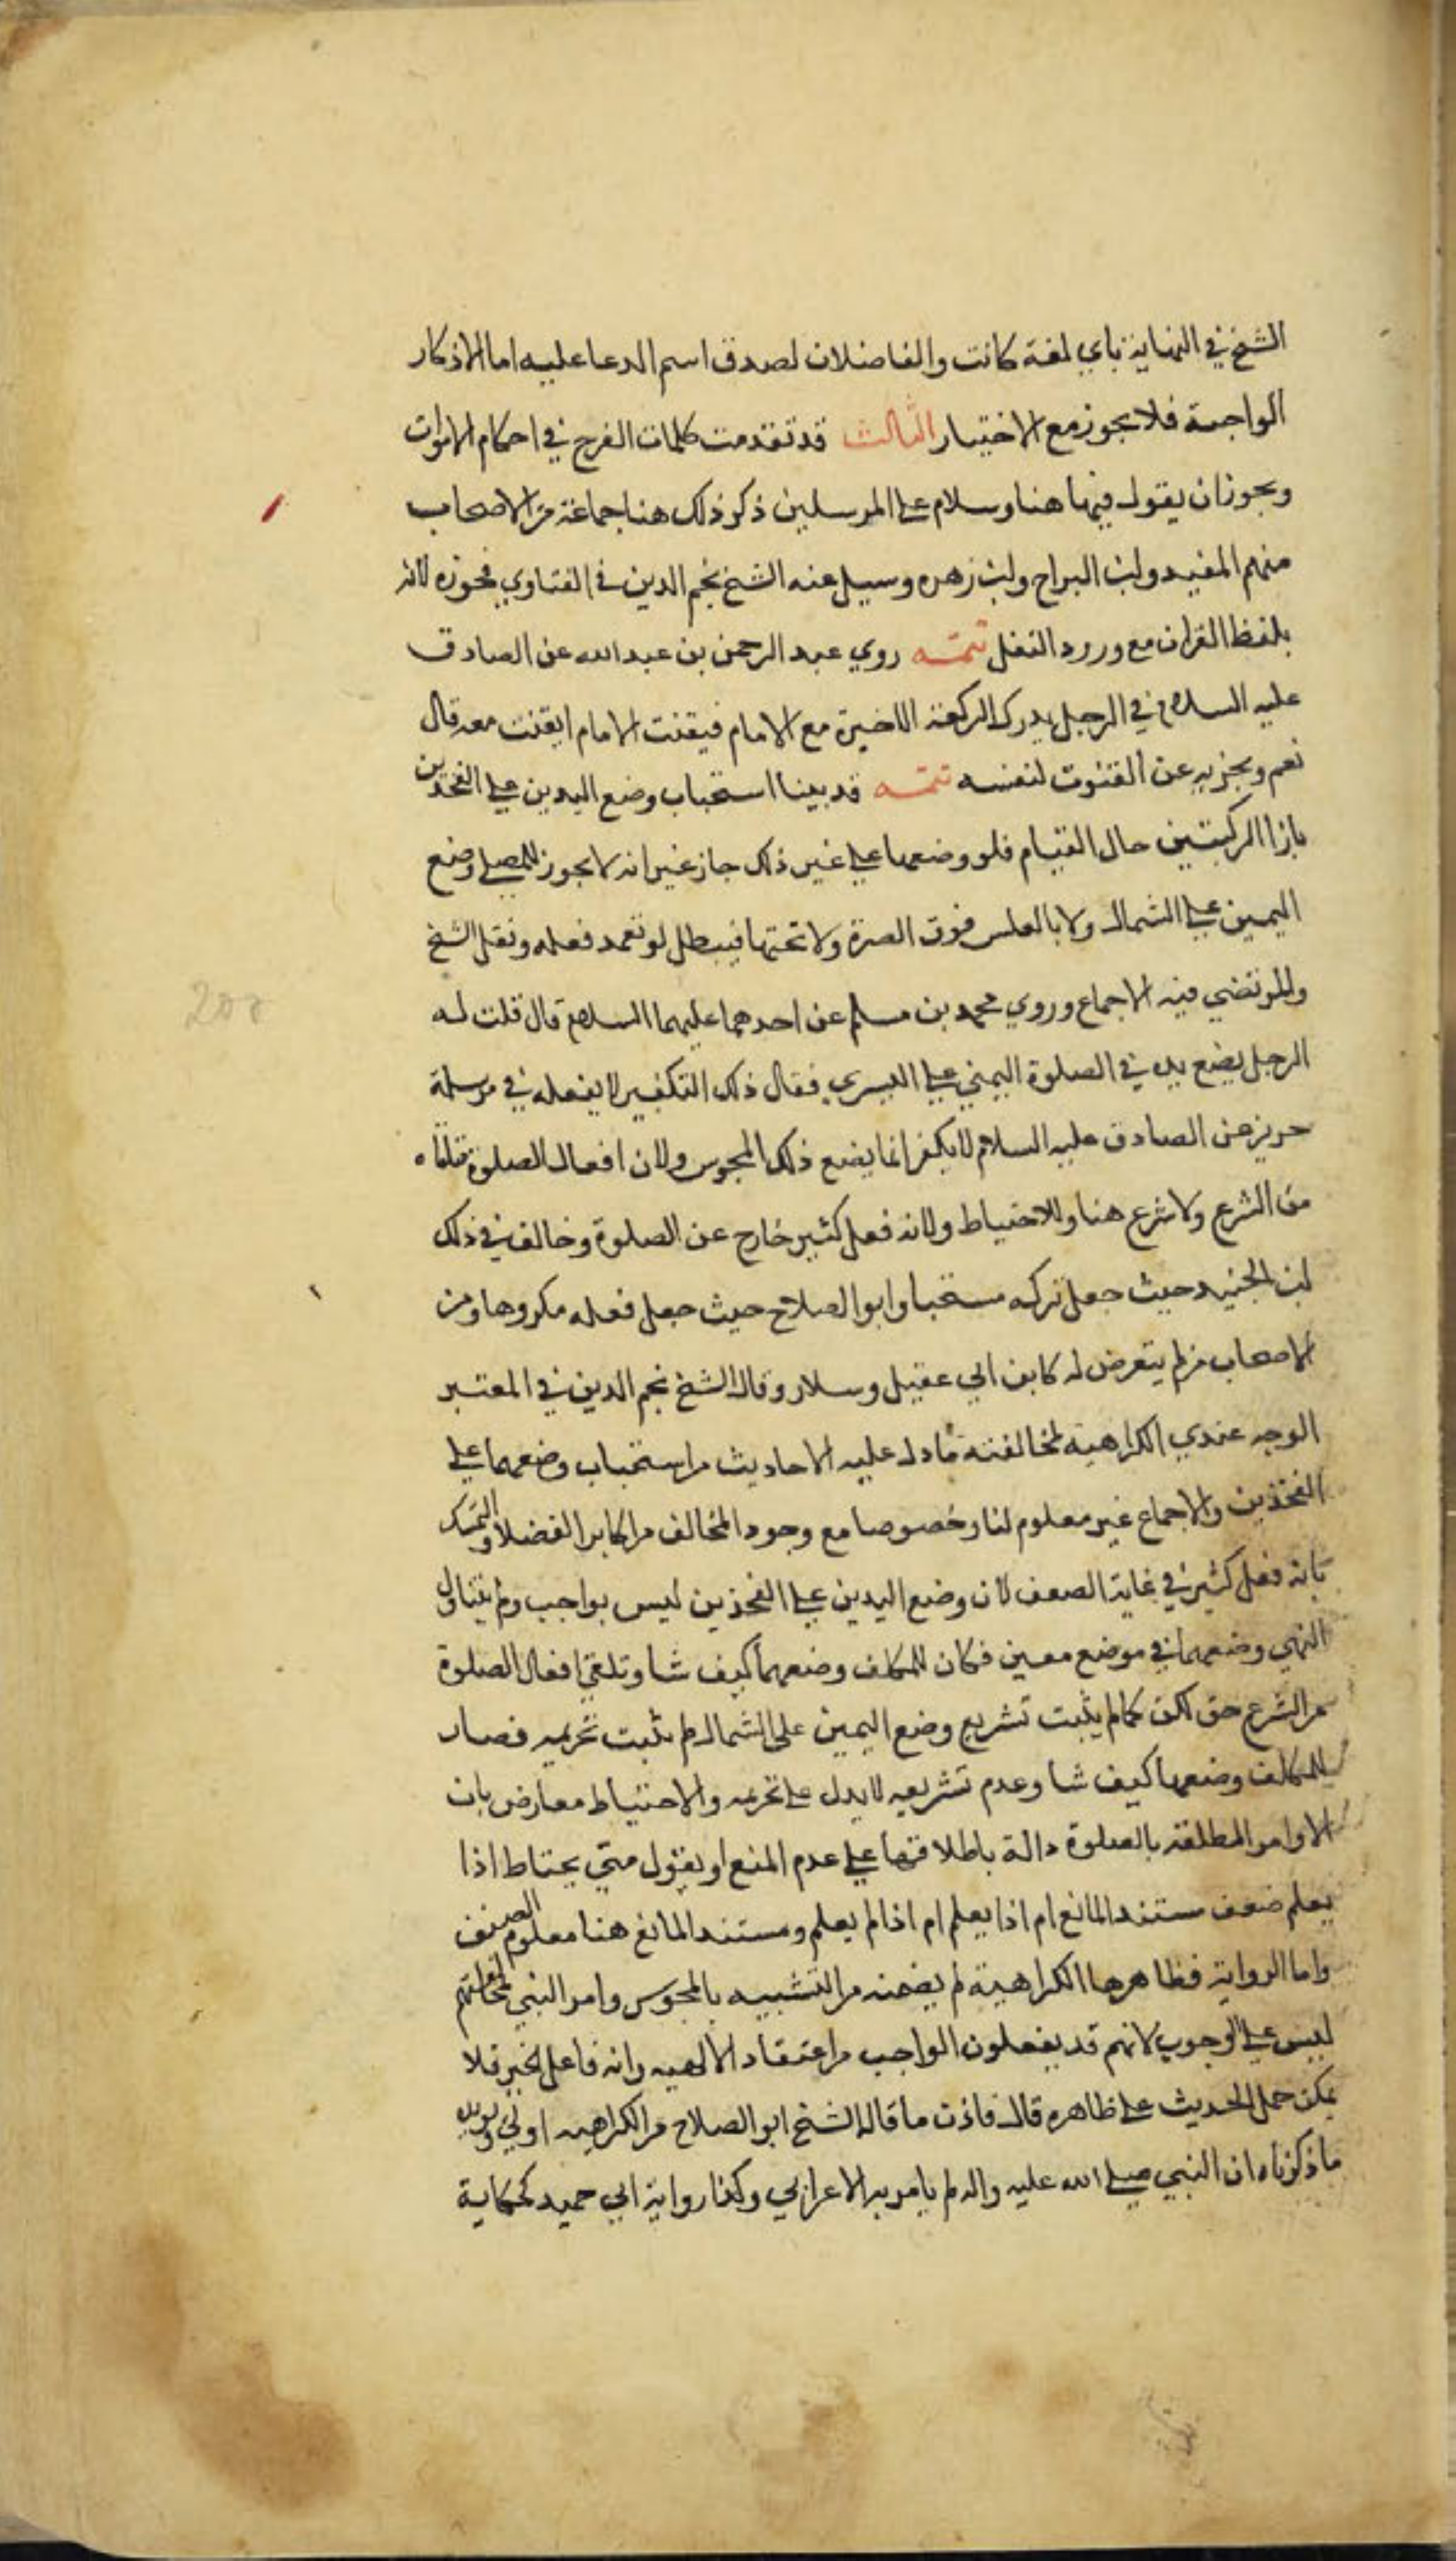 الشيخ في النهاية باي لغة كانت والفاضلان لصدق اسم الدعا عليه اما الاذكار
الواجبة فلا يجوز مع الاختيار الثالث قد تقدمت كلمات الفرج في احكام الاموات
ويجوز ان يقول فيها هنا وسلام على المرسلين ذكر ذلك هنا جماعة من الاصحاب
منهم المفيد وابن البراج وابن زهره وسيل عنه الشيخ نجم الدين في الفتاوي فجوزه لانه
بلفظ القران مع ورود النقل تتمه روي عبد الرحمن بن عبد الله عن الصادق
عليه السلام في الرجل يدرك الركعة الاخيرة مع الامام فيقنت الامام ايقنت معه قال
نعم ويجزيه عن القنوت لنفسه تتمه قد بينا استحباب وضع اليدين على الفخذين
بازا الركبتين حال القيام فلو وضعهما على غير ذلك جاز غير انه لا يجوز للمصلي وضع
اليمين على الشمال ولا بالعكس فوق السرة ولا تحتها فيبطل لو تعمد فعله ونقل الشيخ
والمرتضي فيه الاجماع وروي محمد بن مسلم عن احدهما عليهما السلام قال قلت له
الرجل يضع يده في الصلوة اليمني على اليسري فقال ذلك التكفير لا يفعله في مرسلة
حريز عن الصادق عليه السلام لا يكفر انما يضع ذلك المجوس ولان افعال الصلوة متلقاه
من الشرع ولا شرع هنا وللاحتياط ولانه فعل كثير خارج عن الصلوة وخالف في ذلك
ابن الجنيد حيث جعل تركه مستحبا وابو الصلاح حيث جعل فعله مكروها ومن
الاصحاب من لم يتعرض له كابن ابي عقيل وسلار وقال الشيخ نجم الدين في المعتبر
الوجه عندي الكراهية لمخالفته ما دل عليه الاحاديث من استحباب وضعهما على
الفخذين والاجماع غير معلوم لنا وخصوصا مع وجود المخالف من اكابر الفضلا والتمسك
بانه فعل كثير في غاية الضعف لان وضع اليدين على الفخذين ليس بواجب ولم يتناول
النهي وضعهما في موضع معين فكان للمكلف وضعهما كيف شا وتلقي افعال الصلوة
من الشرع حق لكن كما لم يثبت تشريع وضع اليمين على الشمال لم يثبت تحريمه فصار
للمكلف وضعهما كيف شا وعدم تشريعه لا يدل على تحريمه والاحتياط معارض بان
الاوامر المطلقة بالصلوة دالة باطلاقها على عدم المنع او يقول متي يحتاط اذا
يعلم ضعف مستند المانع ام اذا يعلم ام اذا لم يعلم ومستند المانع هنا معلوم الضعف
واما الرواية فظاهرها الكراهية لم يضمنه من التشبيه بالمجوس وامر النبي بمخالفتهم
ليس على الوجوب لانهم قد يفعلون الواجب من اعتقاد الالهيه وانه فاعل الخير فلا
يمكن حمل الحديث على ظاهره قال فاذن ما قاله الشيخ ابو الصلاح من الكراهيه اولي ويويد
ما ذكرناه ان النبي صلى الله عليه واله لم يامر به الاعرابي وكذا رواية ابي حميد كحكاية